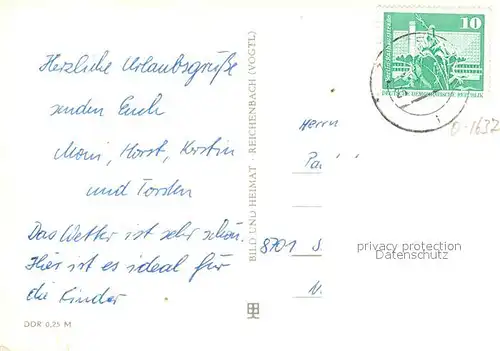 Herzliche Urlaubsgrüße
senden Euch
Moni, Horst, Kerstin
und Torsten
Das Wetter ist sehr schön.
Hier ist es ideal für
die Kinder
DDR 0,25 M
BILD UND HEIMAT · REICHENBACH (VOGTL)
10
DEUTSCHE DEMOKRATISCHE REPUBLIK
0-1637
Herrn
8701
privacy protection
Datenschutz